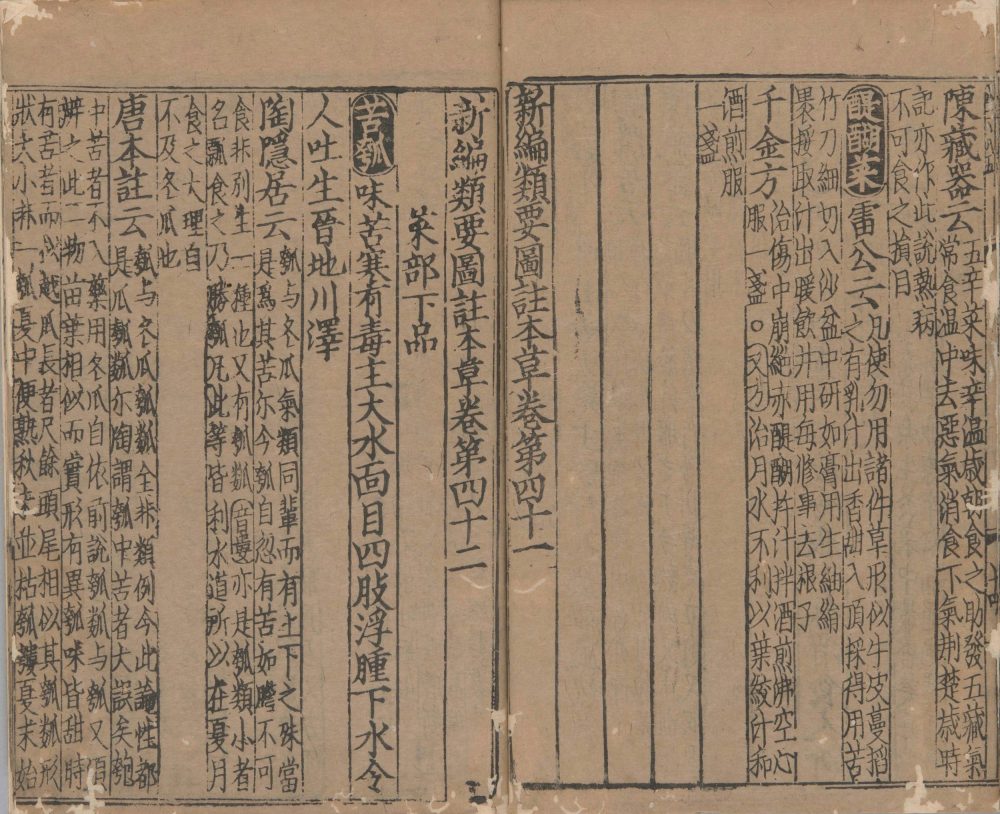 陳藏器云
五辛菜味辛温歳朝食之助發五藏氣
常食温中去惡氣消食下氣荆楚歳時
記亦作此說熱病
不可食之損目
醍醐菜雷公云
凡使勿用諸件草形似牛皮蔓掐
之有乳汁出香甜入頂採得用苦
竹刀細切入沙盆中研如膏用生紬絹
裹挼取汁出暖飲并用每修事去根子
千金方
治傷中崩絶赤醍醐杵汁拌酒煎沸空心
服一盞○又方治月水不利以葉絞汁和
酒煎服
一盞
新編類要圖註本草卷第四十一
新編類要圖註本草卷第四十二
菜部下品
苦瓠味苦寒有毒主大水面目四肢浮腫下水令
人吐生晉地川澤
陶隱居云
瓠与冬瓜氣類同輩而有上下之殊當
是爲其苦尓今瓠自忽有苦如膽不可
食非別生一種也又有瓠㼐音婁亦是瓠類小者
名瓢食之乃勝瓠凡此等皆利水道所以在夏月
食之大理自
不及冬瓜也
唐本註云
瓠与冬瓜瓠㼐全非類例今此論性都
是瓜瓠㼐尓陶謂瓠中苦者大誤矣瓠
中苦者不入藥用冬瓜自依前說瓠㼐与瓠又須
辨之此二物苗葉相似而實形有異瓠味皆甜時
有苦者而似越瓜長者尺餘頭尾相似其瓠㼐形
狀大小非一瓠夏中便熟秋末並枯瓠㼐夏末始